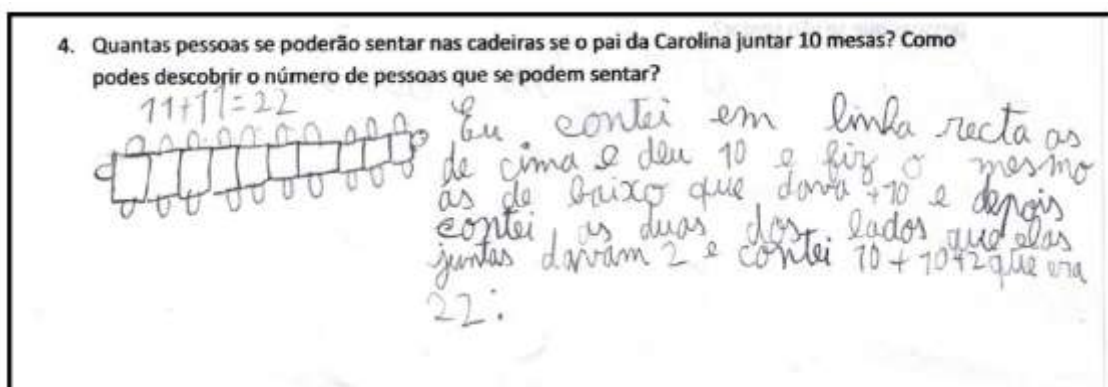 4. Quantas pessoas se poderão sentar nas cadeiras se o pai da Carolina juntar 10 mesas? Como
podes descobrir o número de pessoas que se podem sentar?
11+11=22
Eu contei em linha recta as
de cima e deu 10 e fiz o mesmo
ás de baixo que dava +10 e depois
contei as duas dos lados que elas
juntas davam 2 e contei 10+10+2 que era
22.